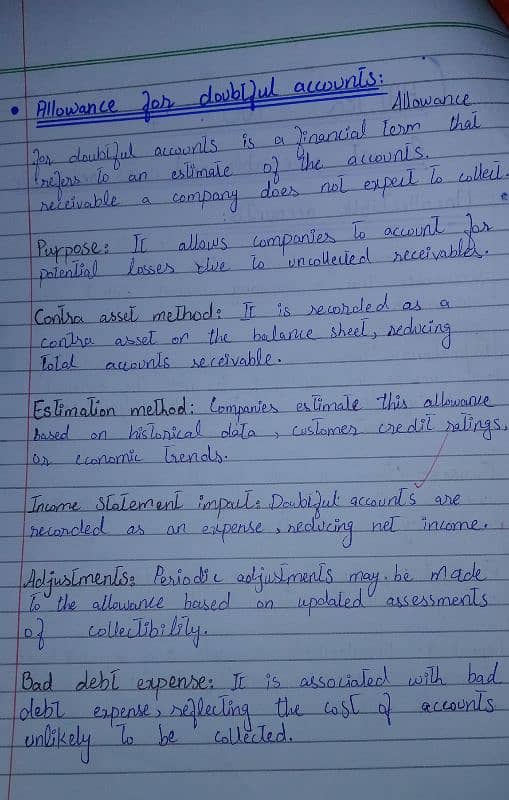 • Allowance for doubtful accounts:
Allowance
for doubtful accounts is a financial term that
refers to an estimate of the accounts.
receivable a company does not expect to collect.
Purpose: It allows companies to account for
potential losses due to uncollected receivables.
Contra asset method: It is recorded as a
contra asset on the balance sheet, reducing
total accounts receivable.
Estimation method: Companies estimate this allowance
based on historical data, customer credit ratings,
or economic trends.
Income statement impact: Doubtful accounts are
recorded as an expense, reducing net income.
Adjustments: Periodic adjustments may be made
to the allowance based on updated assessments
of collectibility.
Bad debt expense: It is associated with bad
debt expense, reflecting the cost of accounts
unlikely to be collected.